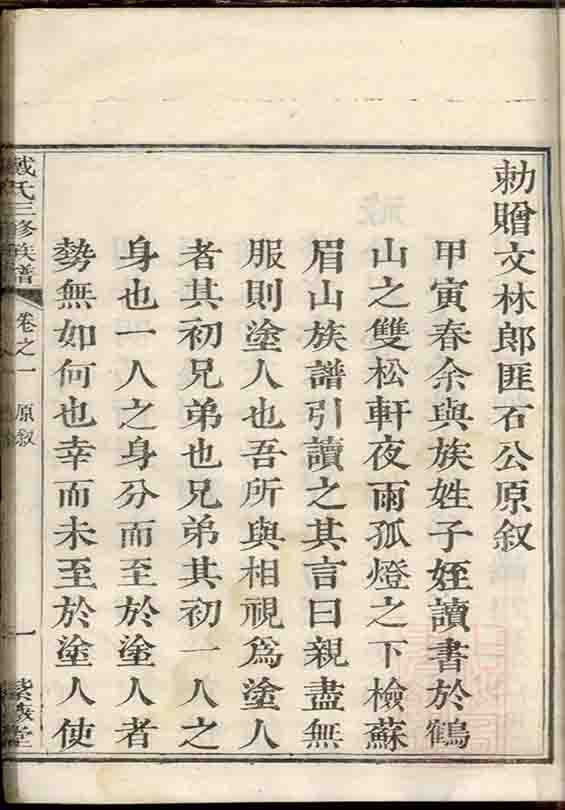 勅贈文林郎匪石公原叙
甲寅春余與族姓子姪讀書於鶴
山之雙松軒夜雨孤燈之下檢蘇
眉山族譜引讀之其言曰親盡無
服則塗人也吾所與相視為塗人
者其初兄弟也兄弟其初一人之
身也一人之身分而至於塗人者
勢無如何也幸而未至於塗人使
戴氏三修族譜
卷之一
原叙
一